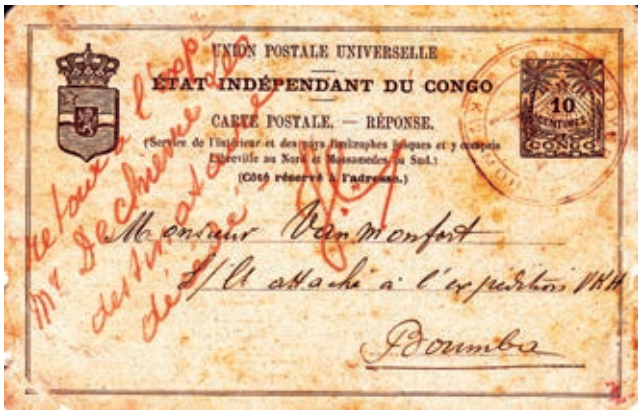 UNION POSTALE UNIVERSELLE
ÉTAT INDÉPENDANT DU CONGO
CARTE POSTALE. — RÉPONSE.
(Service de l'intérieur et des pays limitrophes jusques et y compris
Libreville au Nord et Mossamedes au Sud.)
(Côté réservé à l'adresse.)
10
CENTIMES
CONGO
retour à l'exp
Mr Dechième
destinataire
Monsieur Vanmonfort
S/Lt attaché à l'expédition VKH
Boumba